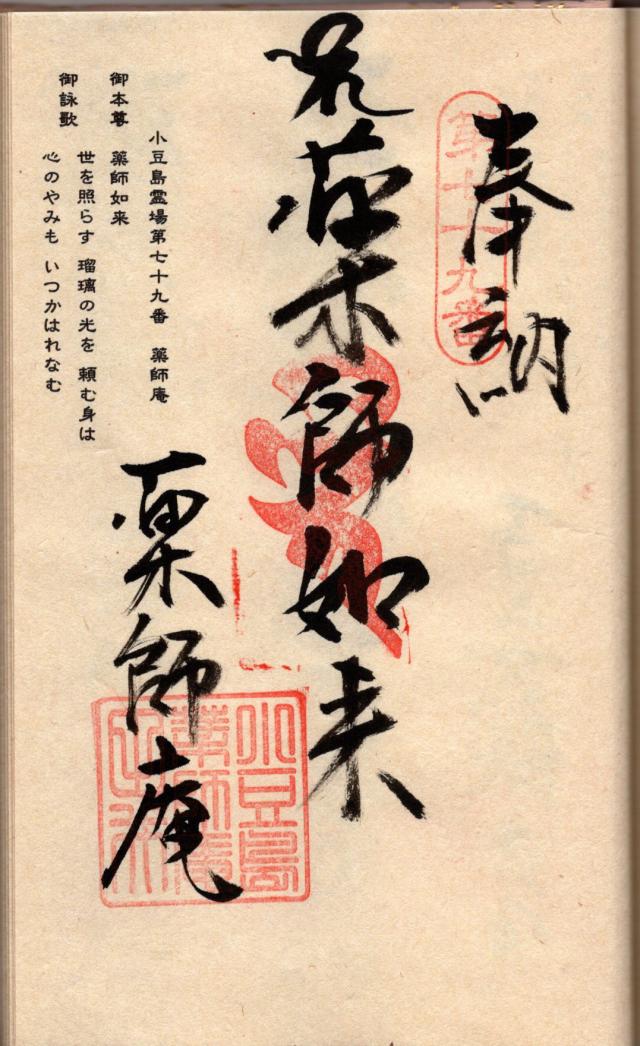 奉納
第七十九番
薬師如来
小豆島霊場第七十九番 薬師庵
御本尊 薬師如来
御詠歌
世を照らす 瑠璃の光を 頼む身は
心のやみも いつかはれなむ
薬師庵
小豆島
薬師庵